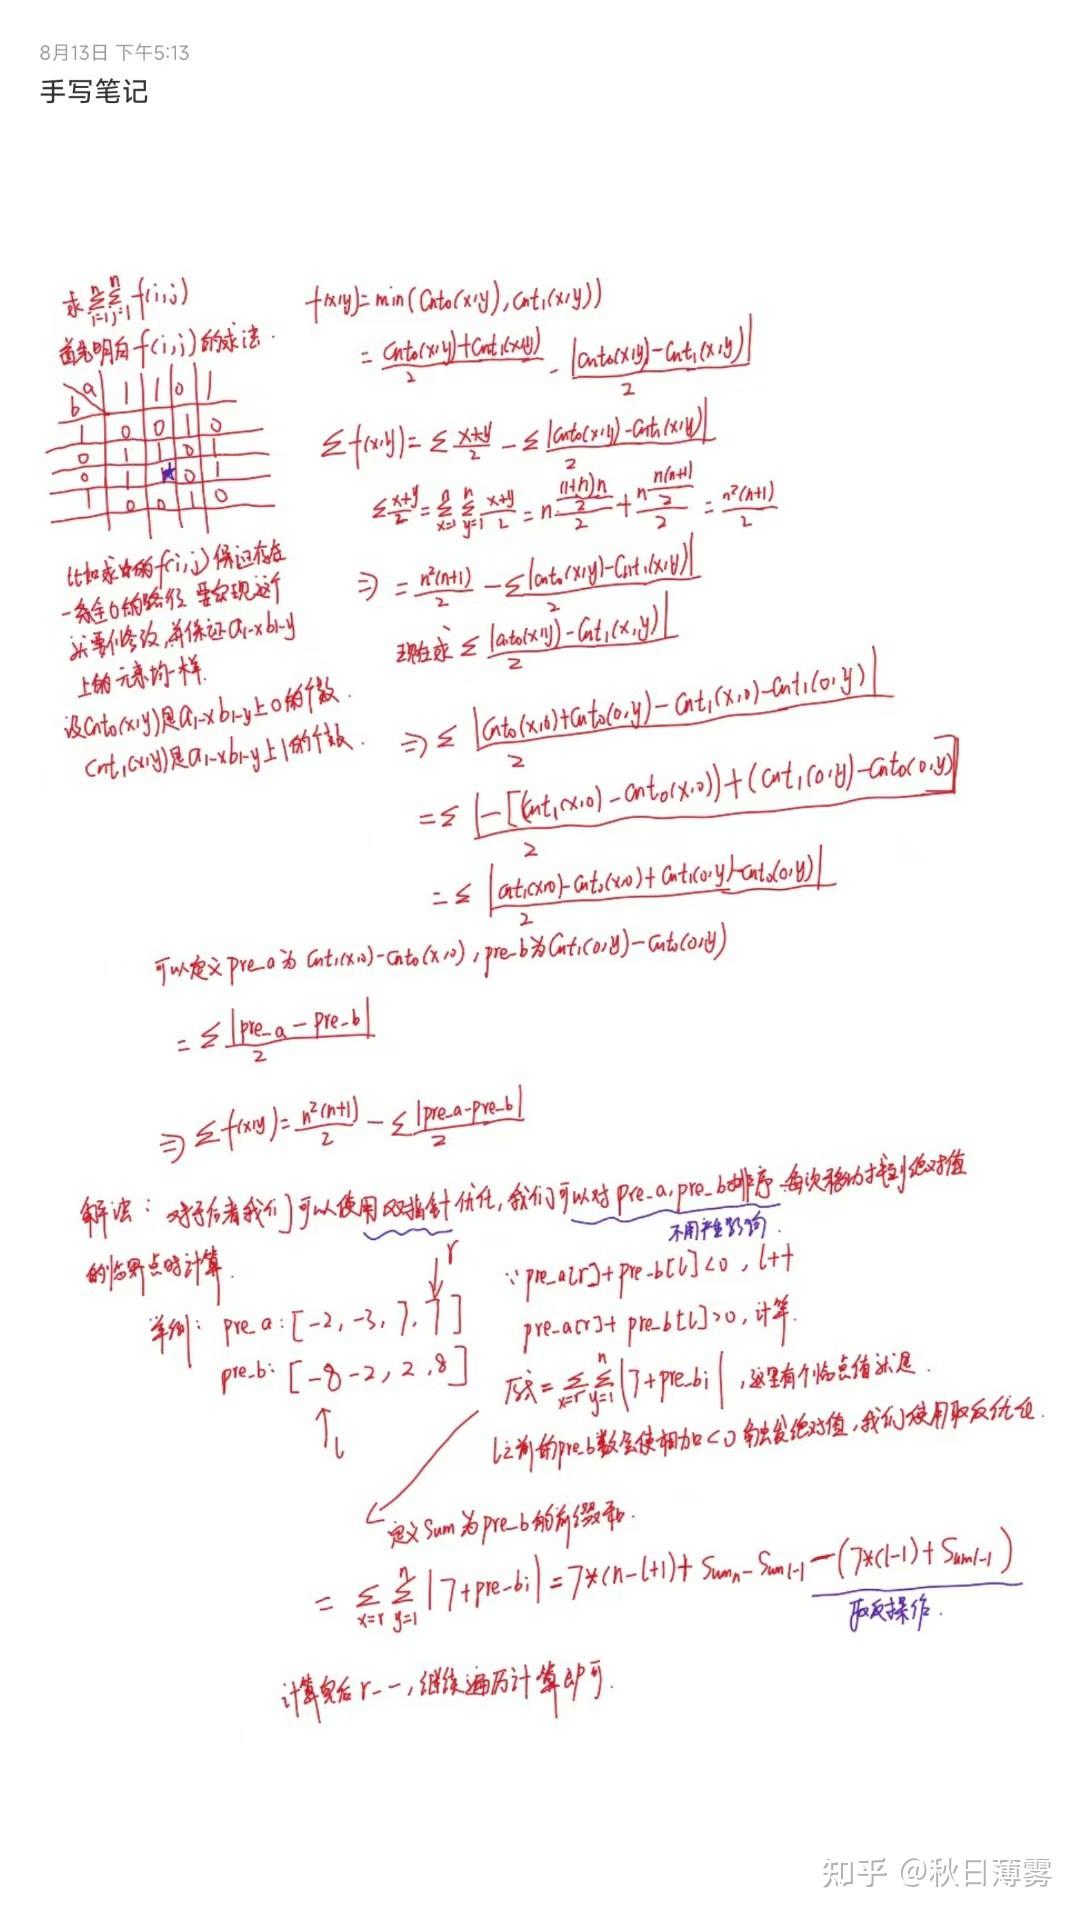 8月13日 下午5:13
手写笔记
求 Σ(i=1..n) Σ(j=1..n) f(i,j)
首先明白f(i,j)的求法.
b\a 1 1 0 1
1 0 0 1 0
0 1 1 0 1
0 1 ★ 0 1
1 0 0 1 0
比如求★的f(i,j)保证存在
一条全0的路径,要实现这个
并保证a1-x b1-y
上的元素均一样.
设Cnt0(x,y)是a1-x b1-y上0的个数.
Cnt1(x,y)是a1-x b1-y上1的个数.
f(x,y)=min(Cnt0(x,y),Cnt1(x,y))
= (Cnt0(x,y)+Cnt1(x,y))/2 - |Cnt0(x,y)-Cnt1(x,y)|/2
Σf(x,y)=Σ (x+y)/2 - Σ |Cnt0(x,y)-Cnt1(x,y)|/2
Σ (x+y)/2 = Σ(x=1..n) Σ(y=1..n) (x+y)/2 = n ((1+n)n/2)/2 + n (n(n+1)/2)/2 = n²(n+1)/2
⇒ = n²(n+1)/2 - Σ |Cnt0(x,y)-Cnt1(x,y)|/2
现在求 Σ |Cnt0(x,y)-Cnt1(x,y)|/2
⇒ Σ |Cnt0(x,0)+Cnt0(0,y)-Cnt1(x,0)-Cnt1(0,y)|/2
= Σ |-[(Cnt1(x,0)-Cnt0(x,0))+(Cnt1(0,y)-Cnt0(0,y)]|/2
= Σ |Cnt1(x,0)-Cnt0(x,0)+Cnt1(0,y)-Cnt0(0,y)|/2
可以定义pre_a为Cnt1(x,0)-Cnt0(x,0),pre_b为Cnt1(0,y)-Cnt0(0,y)
= Σ |pre_a-pre_b|/2
⇒ Σf(x,y)= n²(n+1)/2 - Σ |pre_a-pre_b|/2
解法: 对于后者我们可以使用双指针优化,我们可以对pre_a,pre_b排序,每次移动找到绝对值
不用产生影响.
的临界点时计算.
举例: pre_a:[-2,-3,7,7]
r
pre_b:[-8 -2,2,8]
l
∵pre_a[r]+pre_b[l]<0,l++
pre_a[r]+pre_b[l]>0,计算.
原式= Σ(x=r) Σ(y=1..n) |7+pre_bi|,这里有个临点值就是.
l之前的pre_b数会使相加<0触发绝对值,我们使用取反优化.
定义Sum为pre_b的前缀和.
= Σ(x=r) Σ(y=1..n) |7+pre_bi| = 7*(n-l+1)+Sumn-Suml-1-(7*(l-1)+Suml-1)
取反操作.
计算完后r--,继续遍历计算即可.
知乎 @秋日薄雾